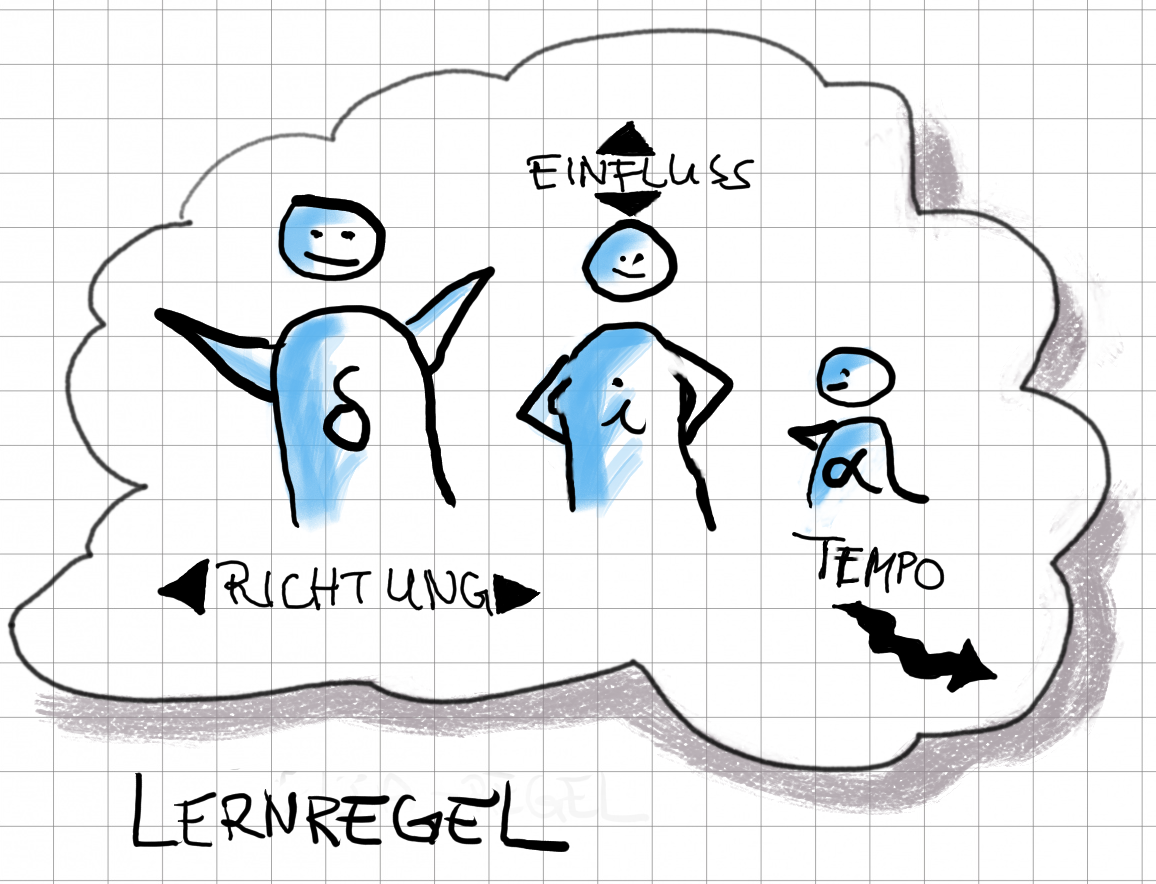 EINFLUSS
δ
i
α
RICHTUNG
TEMPO
LERNREGEL